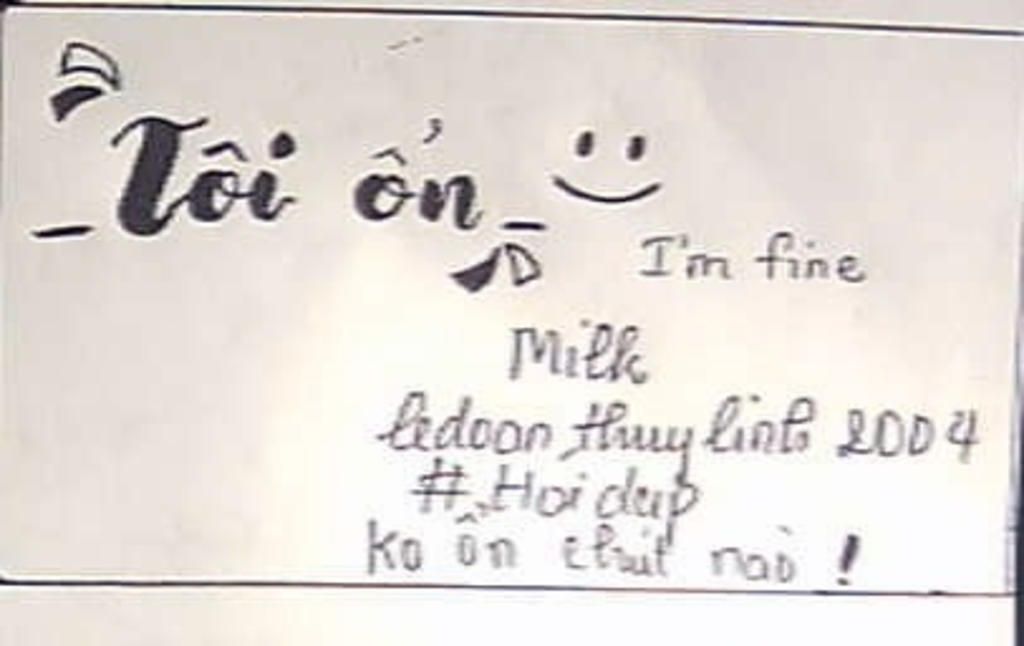 Tôi ổn
I'm fine
Milk
ledoan thuy linh 2004
# Hoi dep
ko ổn chút nào !